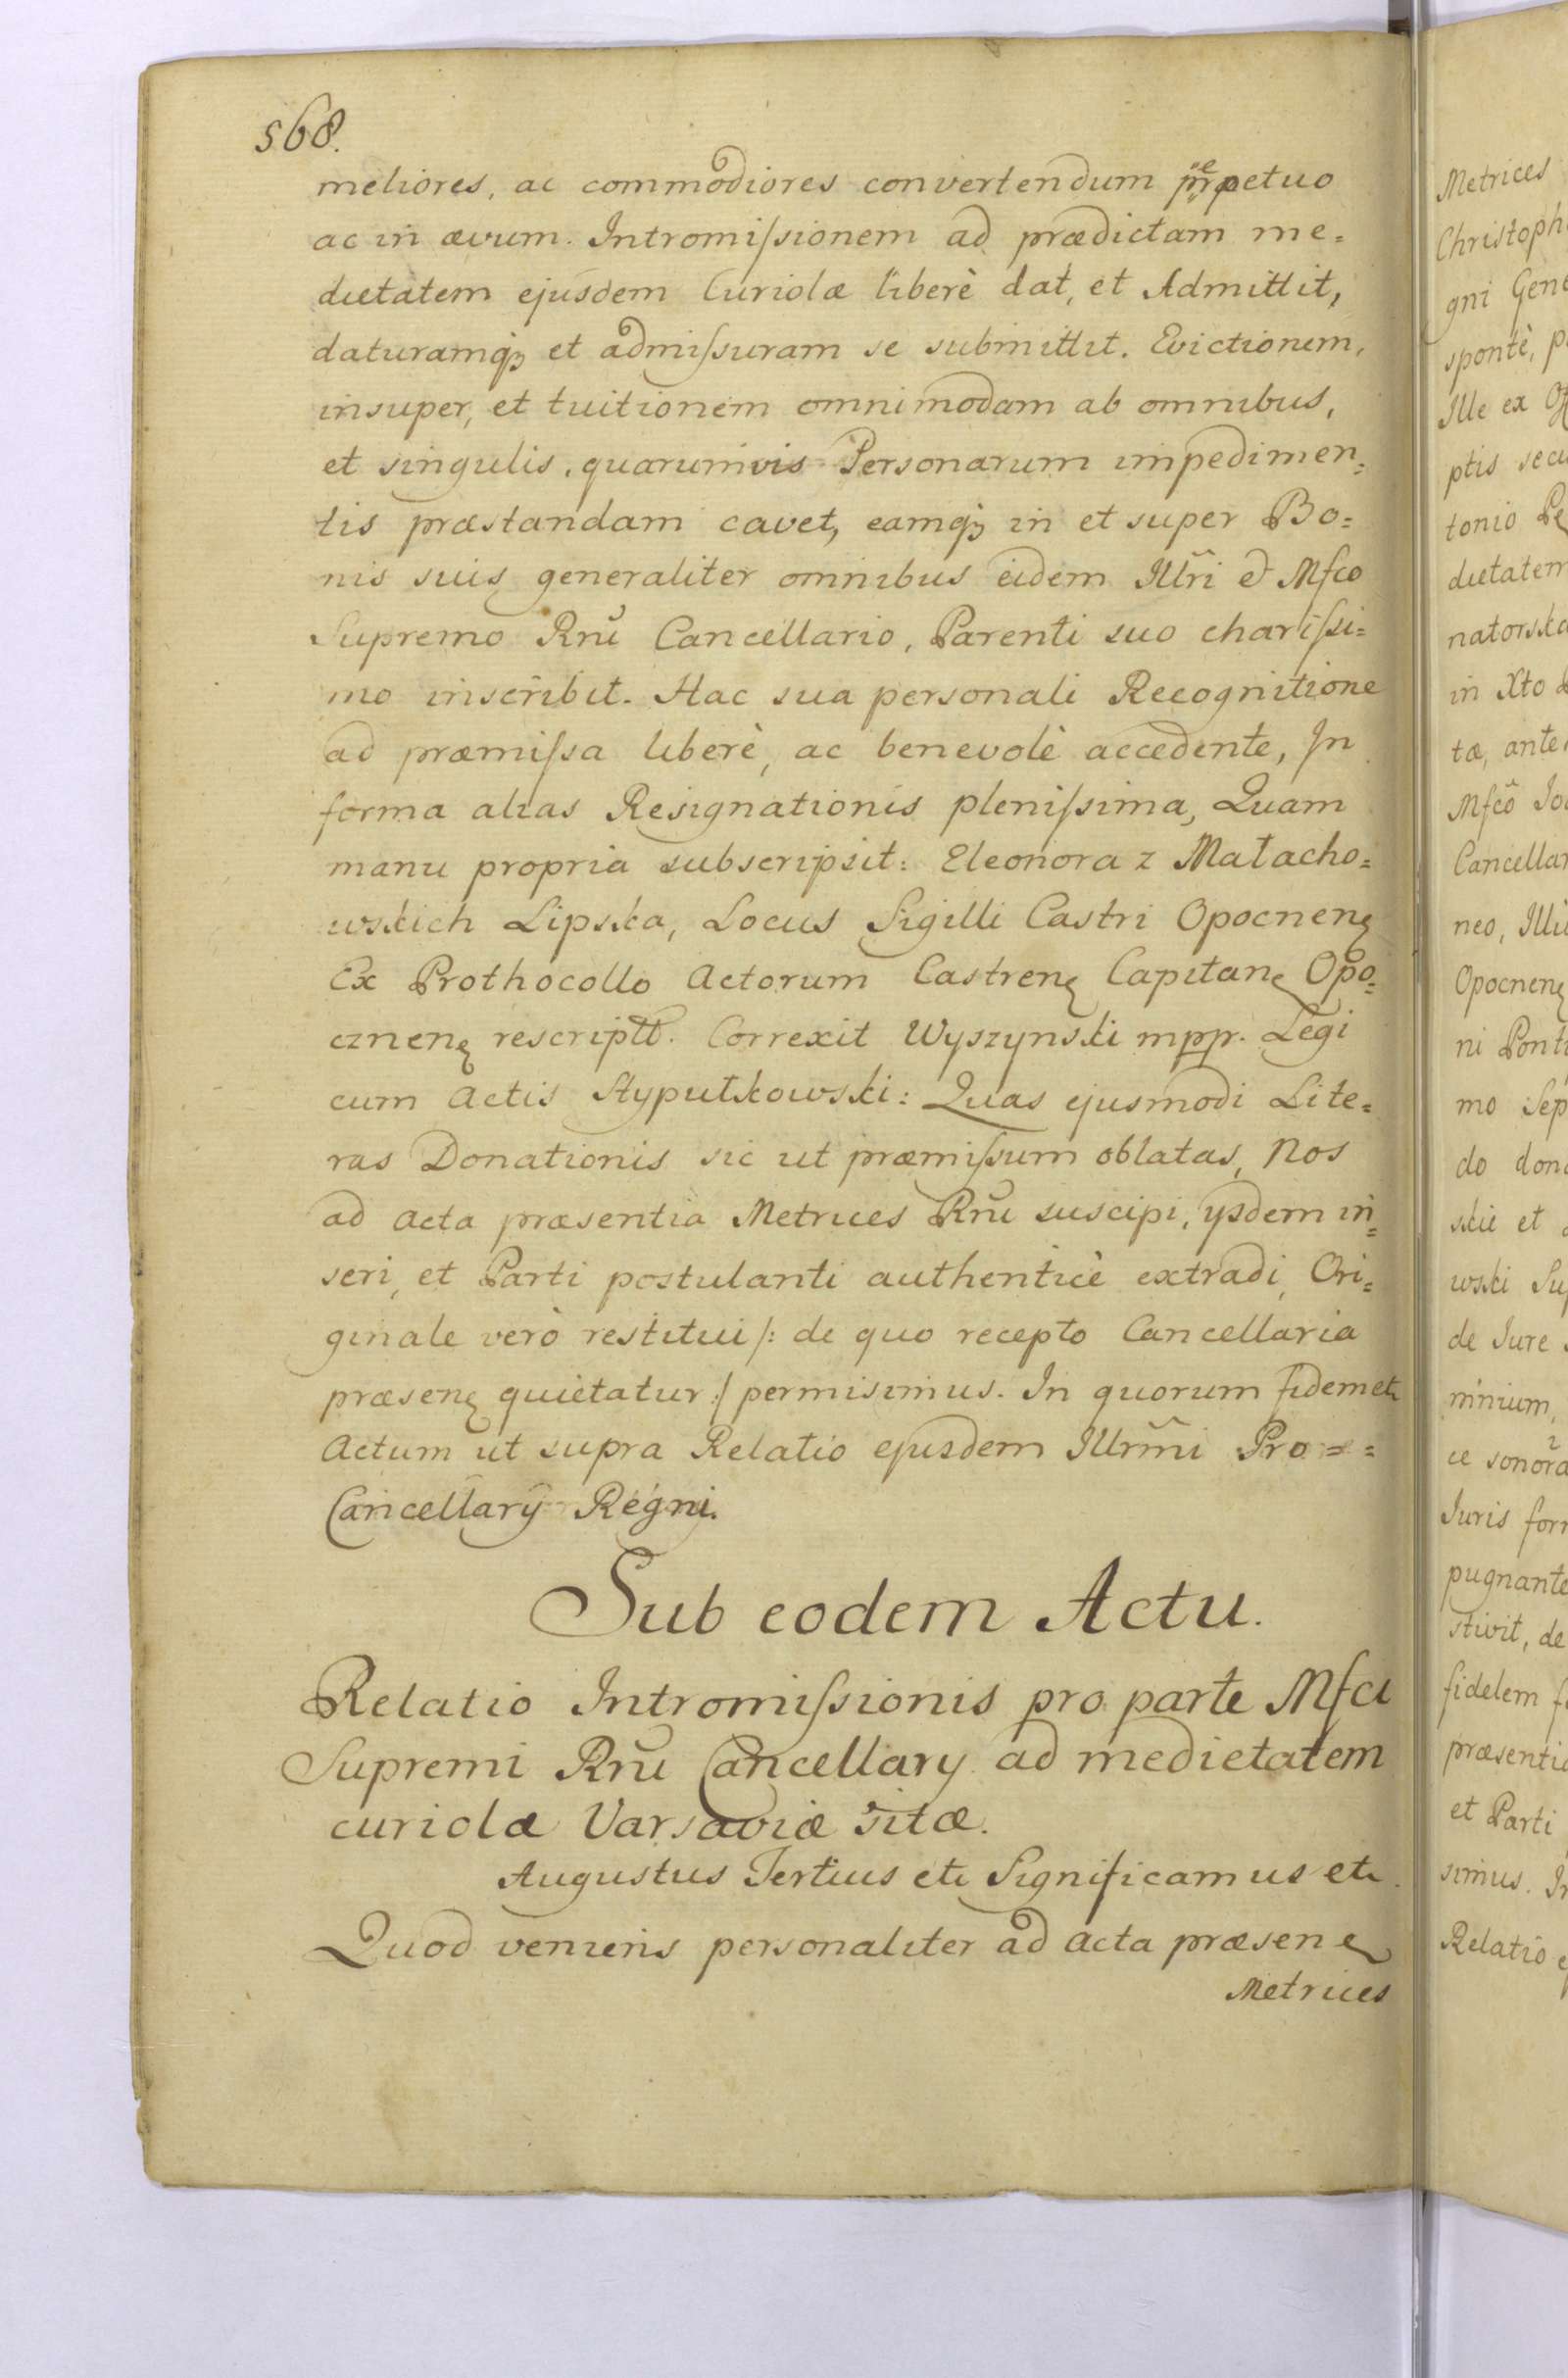 568.
meliores, ac commodiores convertendum perpetuo
ac in ævum. Intromiſsionem ad prædictam me=
dietatem ejusdem Curiolæ liberè dat, et Admittit,
daturamqꝫ et admiſsuram se submittit. Evictionem,
insuper, et tuitionem omnimodam ab omnibus,
et singulis, quarumvis Personarum impedimen=
tis præstandam cavet, eamqꝫ in et super Bo=
nis suis generaliter omnibus eidem Illr̃i & Mfco
Supremo Rñi Cancellario, Parenti suo chariſsi=
mo inscribit. Hac sua personali Recognitione
ad præmiſsa liberè, ac benevolè accedente, In
forma alias Resignationis pleniſsima, Quam
manu propria subscripsit: Eleonora z Małacho=
wskich Lipska, Locus Sigilli Castri Opocnenę
Ex Prothocollo Actorum Castrenę Capitanę Opo=
cznenę rescriptt. Correxit Wyszynski mpp. Legi
cum Actis Stypułkowski: Quas ejusmodi Lite=
ras Donationis sic ut præmiſsum oblatas, Nos
ad Acta præsentia Metrices Rñi suscipi, ysdem in=
seri, et Parti postulanti authenticè extradi, Ori=
ginale verò restitui /: de quo recepto Cancellaria
præsenę quietatur :/ permisimus. In quorum fidem etc
Actum ut supra Relatio ejusdem Illrm̃i Pro=
Cancellarÿ Regni.
Sub eodem Actu.
Relatio Intromiſsionis pro parte Mfci
Supremi Rñi Cancellary ad medietatem
curiolæ Varsaviæ sitæ.
Augustus Tertius etc Significamus etc.
Quod veniens personaliter ad Acta præsenę
Metrices
Metrices
Christoph
gni Gene
spontè, p
Ille ex Of
ptis secu
tonio Pe
dietatem
natorska
in Xto
tæ, ante
Mfcõ Jo
Cancellar
neo, Illu
Opocnenę
ni Ponti
mo Sep
do dona
skie et
wski Sup
de Jure
minium,
ce sonora
Juris for
pugnante
stivit, de
fidelem f
præsentia
et Parti
simus. In
Relatio e